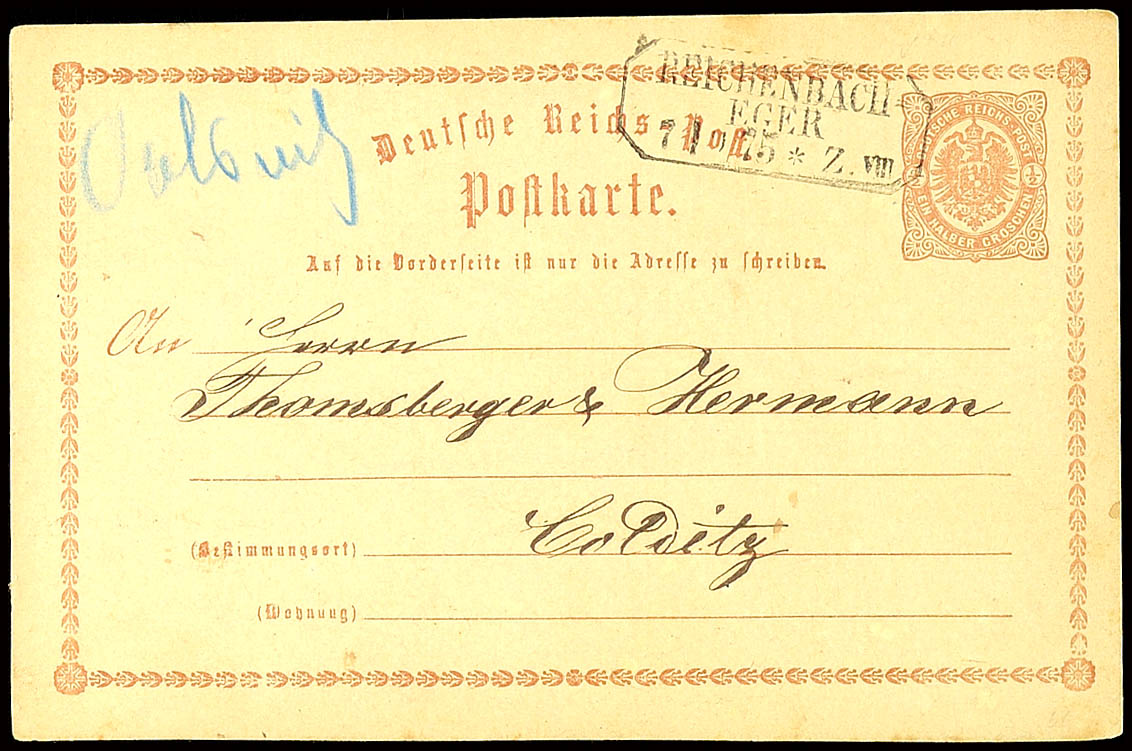 REICHENBACH
EGER
7 1 75 * Z. VIII
Oelsnitz
Deutsche Reichs-Post.
Postkarte.
DEUTSCHE REICHS-POST
½ ½
EIN HALBER GROSCHEN
Auf die Vorderseite ist nur die Adresse zu schreiben.
An Herrn
Thomsberger & Hermann
(Bestimmungsort) Colditz
(Wohnung)